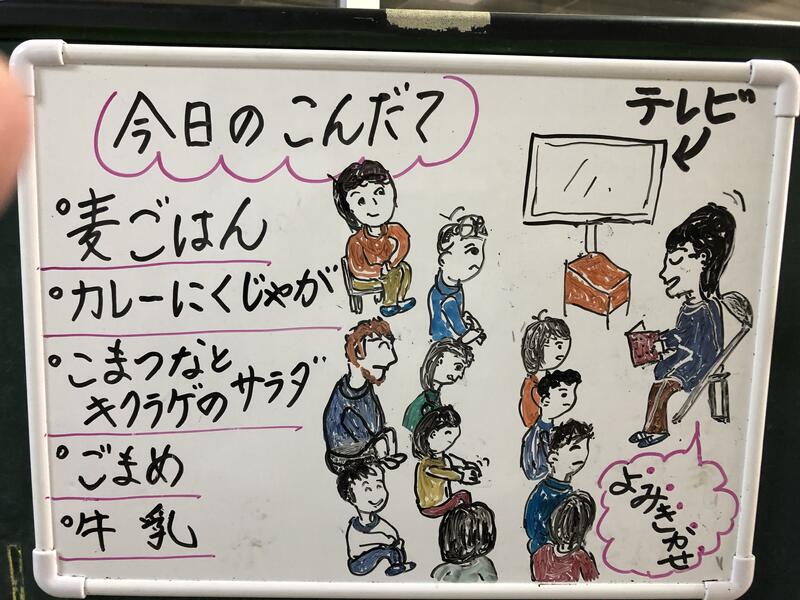 今日のこんだて
麦ごはん
カレーにくじゃが
こまつなと
キクラゲのサラダ
ごまめ
牛乳
テレビ
よみきかせ